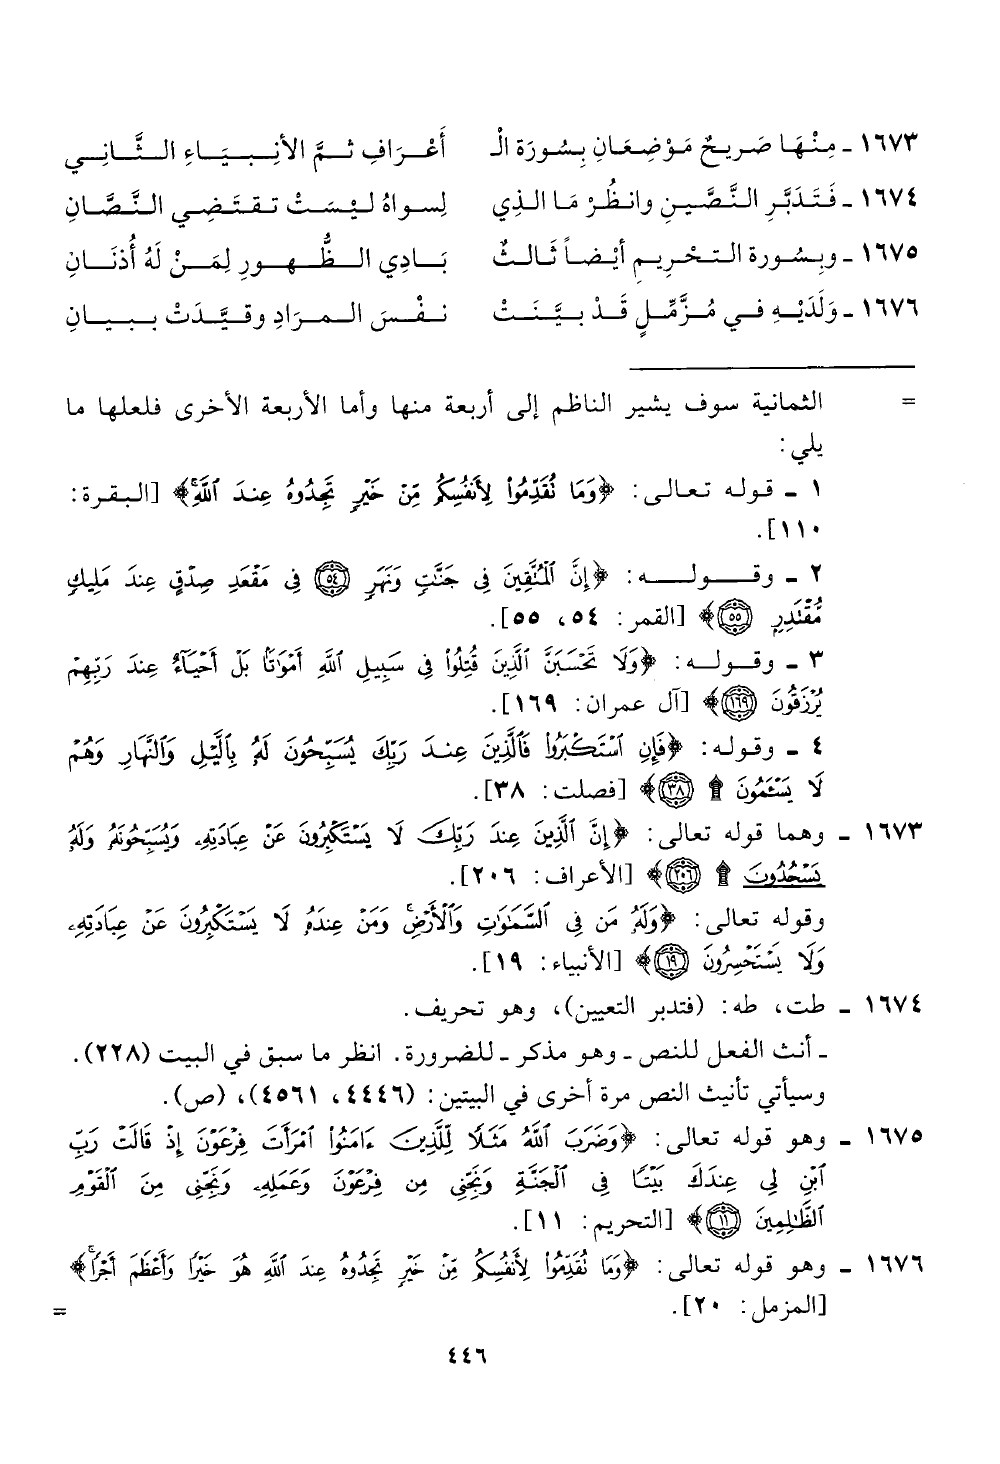 ١٦٧٣ ـ مِنْهَا صَرِيحٌ مَوْضِعَانِ بِسُورَةِ الْـ أَعْرَافِ ثُمَّ الأنْبِيَاءِ الثَّانِي
١٦٧٤ ـ فَتَدَبَّرِ النَّصَّينِ وانظُرْ مَا الذِي لِسواهُ ليْسَتْ تقتَضِي النَّصَّانِ
١٦٧٥ ـ وبِسُورة التحْرِيمِ أيْضاً ثَالثٌ بَادِي الظُّهورِ لِمَنْ لَهُ أُذنَانِ
١٦٧٦ ـ وَلَدَيْهِ في مُزَّمِّلٍ قَدْ بيَّنَتْ نفْسَ المرَادِ وقيَّدَتْ ببيانِ
= الثمانية سوف يشير الناظم إلى أربعة منها وأما الأربعة الأخرى فلعلها ما
يلي:
١ ـ قوله تعالى: ﴿وَمَا نُقَدِّمُوا۟ لِأَنفُسِكُم مِّنْ خَيْرٍ تَجِدُوهُ عِندَ ٱللَّهِۗ﴾ [البقرة:
١١٠].
٢ ـ وقوله: ﴿إِنَّ ٱلْمُتَّقِينَ فِى جَنَّٰتٍ وَنَهَرٍ ۝٥٤ فِى مَقْعَدِ صِدْقٍ عِندَ مَلِيكٍ
مُّقْتَدِرٍ ۝٥٥﴾ [القمر: ٥٤، ٥٥].
٣ ـ وقوله: ﴿وَلَا تَحْسَبَنَّ ٱلَّذِينَ قُتِلُوا۟ فِى سَبِيلِ ٱللَّهِ أَمْوَٰتًۢا بَلْ أَحْيَآءٌ عِندَ رَبِّهِمْ
يُرْزَقُونَ ۝١٦٩﴾ [آل عمران: ١٦٩].
٤ ـ وقوله: ﴿فَإِنِ ٱسْتَكْبَرُوا۟ فَٱلَّذِينَ عِندَ رَبِّكَ يُسَبِّحُونَ لَهُۥ بِٱلَّيْلِ وَٱلنَّهَارِ وَهُمْ
لَا يَسْـَٔمُونَ ۩ ۝٣٨﴾ [فصلت: ٣٨].
١٦٧٣ ـ وهما قوله تعالى: ﴿إِنَّ ٱلَّذِينَ عِندَ رَبِّكَ لَا يَسْتَكْبِرُونَ عَنْ عِبَادَتِهِۦ وَيُسَبِّحُونَهُۥ وَلَهُۥ
يَسْجُدُونَ ۩ ۝٢٠٦﴾ [الأعراف: ٢٠٦].
وقوله تعالى: ﴿وَلَهُۥ مَن فِى ٱلسَّمَٰوَٰتِ وَٱلْأَرْضِۚ وَمَنْ عِندَهُۥ لَا يَسْتَكْبِرُونَ عَنْ عِبَادَتِهِۦ
وَلَا يَسْتَحْسِرُونَ ۝١٩﴾ [الأنبياء: ١٩].
١٦٧٤ ـ طت، طه: (فتدبر التعيين)، وهو تحريف.
ـ أنث الفعل للنص ـ وهو مذكر ـ للضرورة. انظر ما سبق في البيت (٢٢٨).
وسيأتي تأنيث النص مرة أخرى في البيتين: (٤٤٤٦، ٤٥٦١)، (ص).
١٦٧٥ ـ وهو قوله تعالى: ﴿وَضَرَبَ ٱللَّهُ مَثَلًا لِّلَّذِينَ ءَامَنُوا۟ ٱمْرَأَتَ فِرْعَوْنَ إِذْ قَالَتْ رَبِّ
ٱبْنِ لِى عِندَكَ بَيْتًا فِى ٱلْجَنَّةِ وَنَجِّنِى مِن فِرْعَوْنَ وَعَمَلِهِۦ وَنَجِّنِى مِنَ ٱلْقَوْمِ
ٱلظَّٰلِمِينَ ۝١١﴾ [التحريم: ١١].
١٦٧٦ ـ وهو قوله تعالى: ﴿وَمَا نُقَدِّمُوا۟ لِأَنفُسِكُم مِّنْ خَيْرٍ تَجِدُوهُ عِندَ ٱللَّهِ هُوَ خَيْرًا وَأَعْظَمَ أَجْرًاۚ﴾
[المزمل: ٢٠]. =
٤٤٦